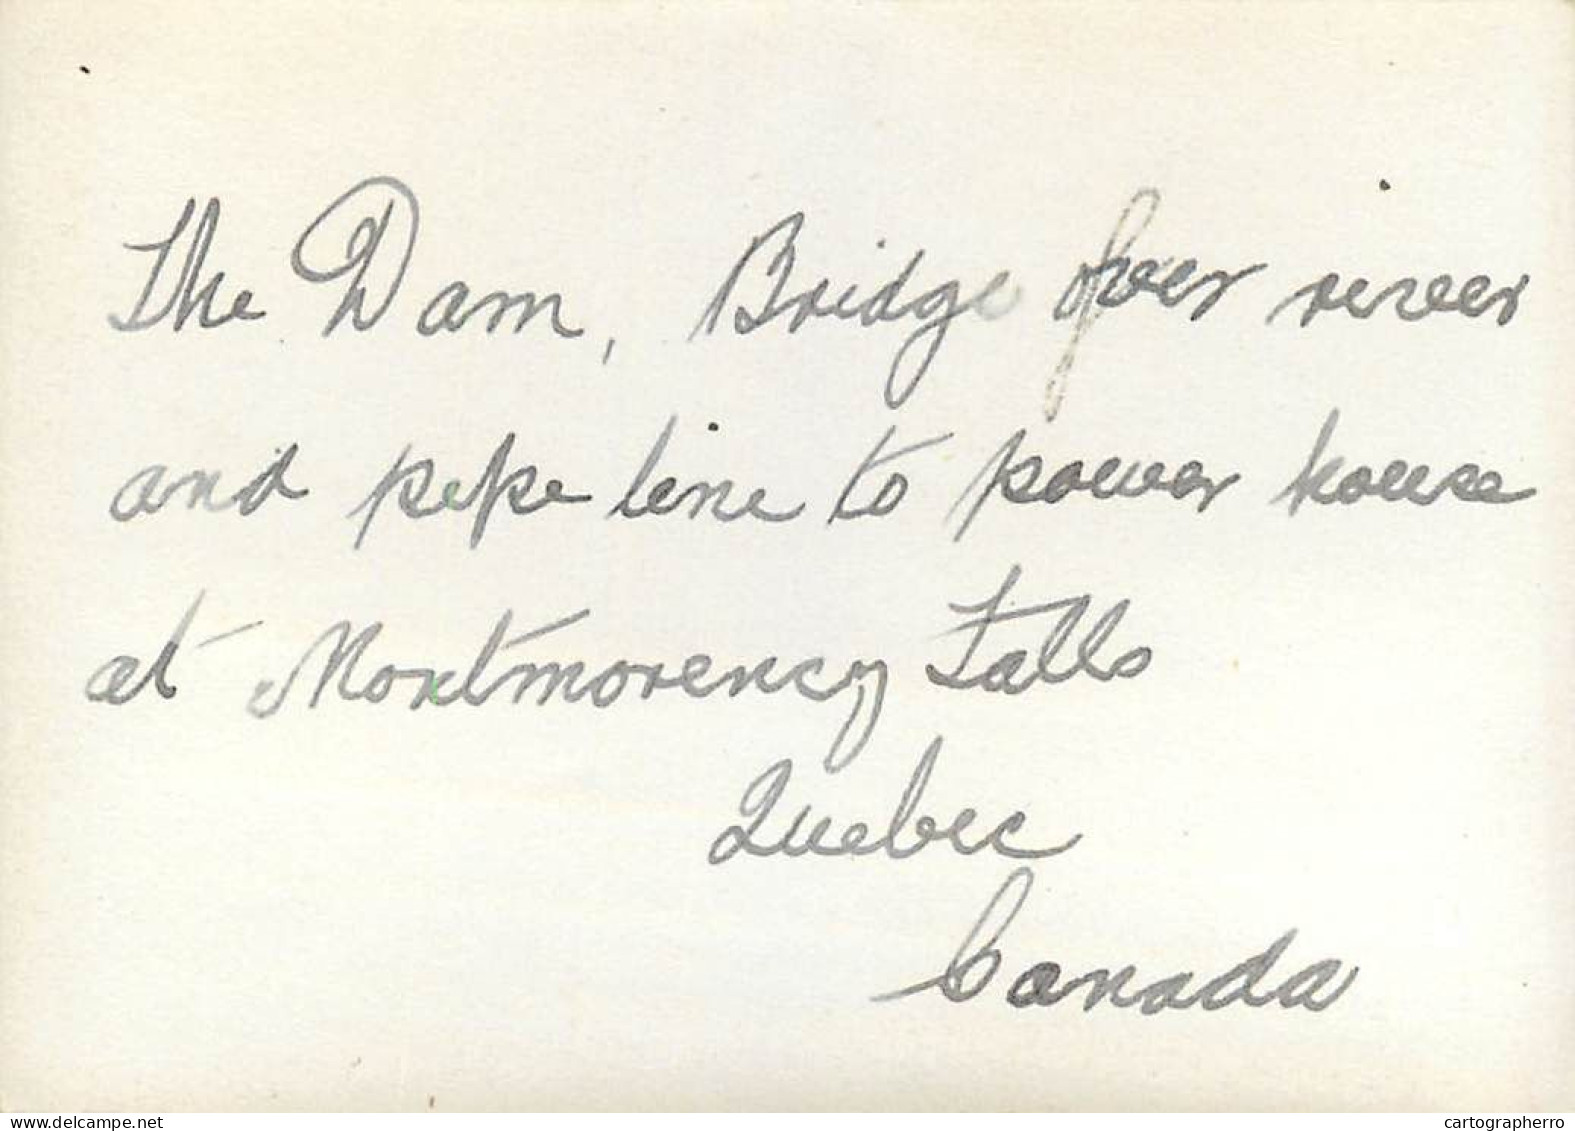 The Dam, Bridge over river
and pipe line to power house
at Montmorency Falls
Quebec
Canada
www.delcampe.net
cartographerro